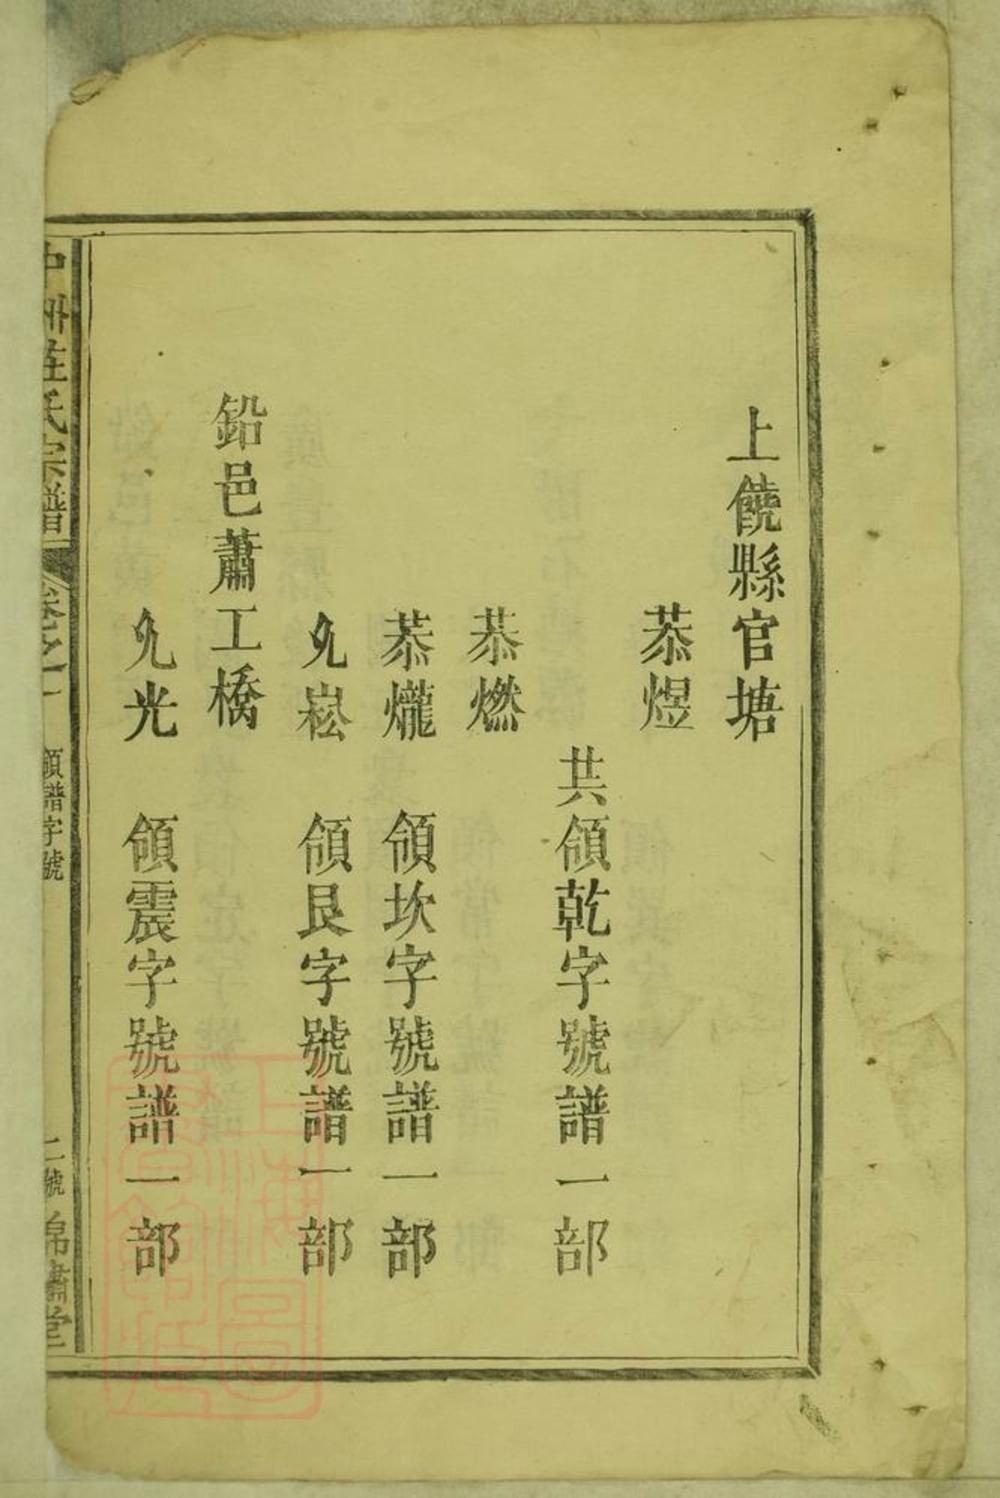 上饒縣官塘
恭煜
共領乾字號譜一部
恭燃
恭爖
領坎字號譜一部
允崧
領艮字號譜一部
鉛邑蕭工橋
允光
領震字號譜一部
氏宗譜
卷之一
領譜字號
二號
堂